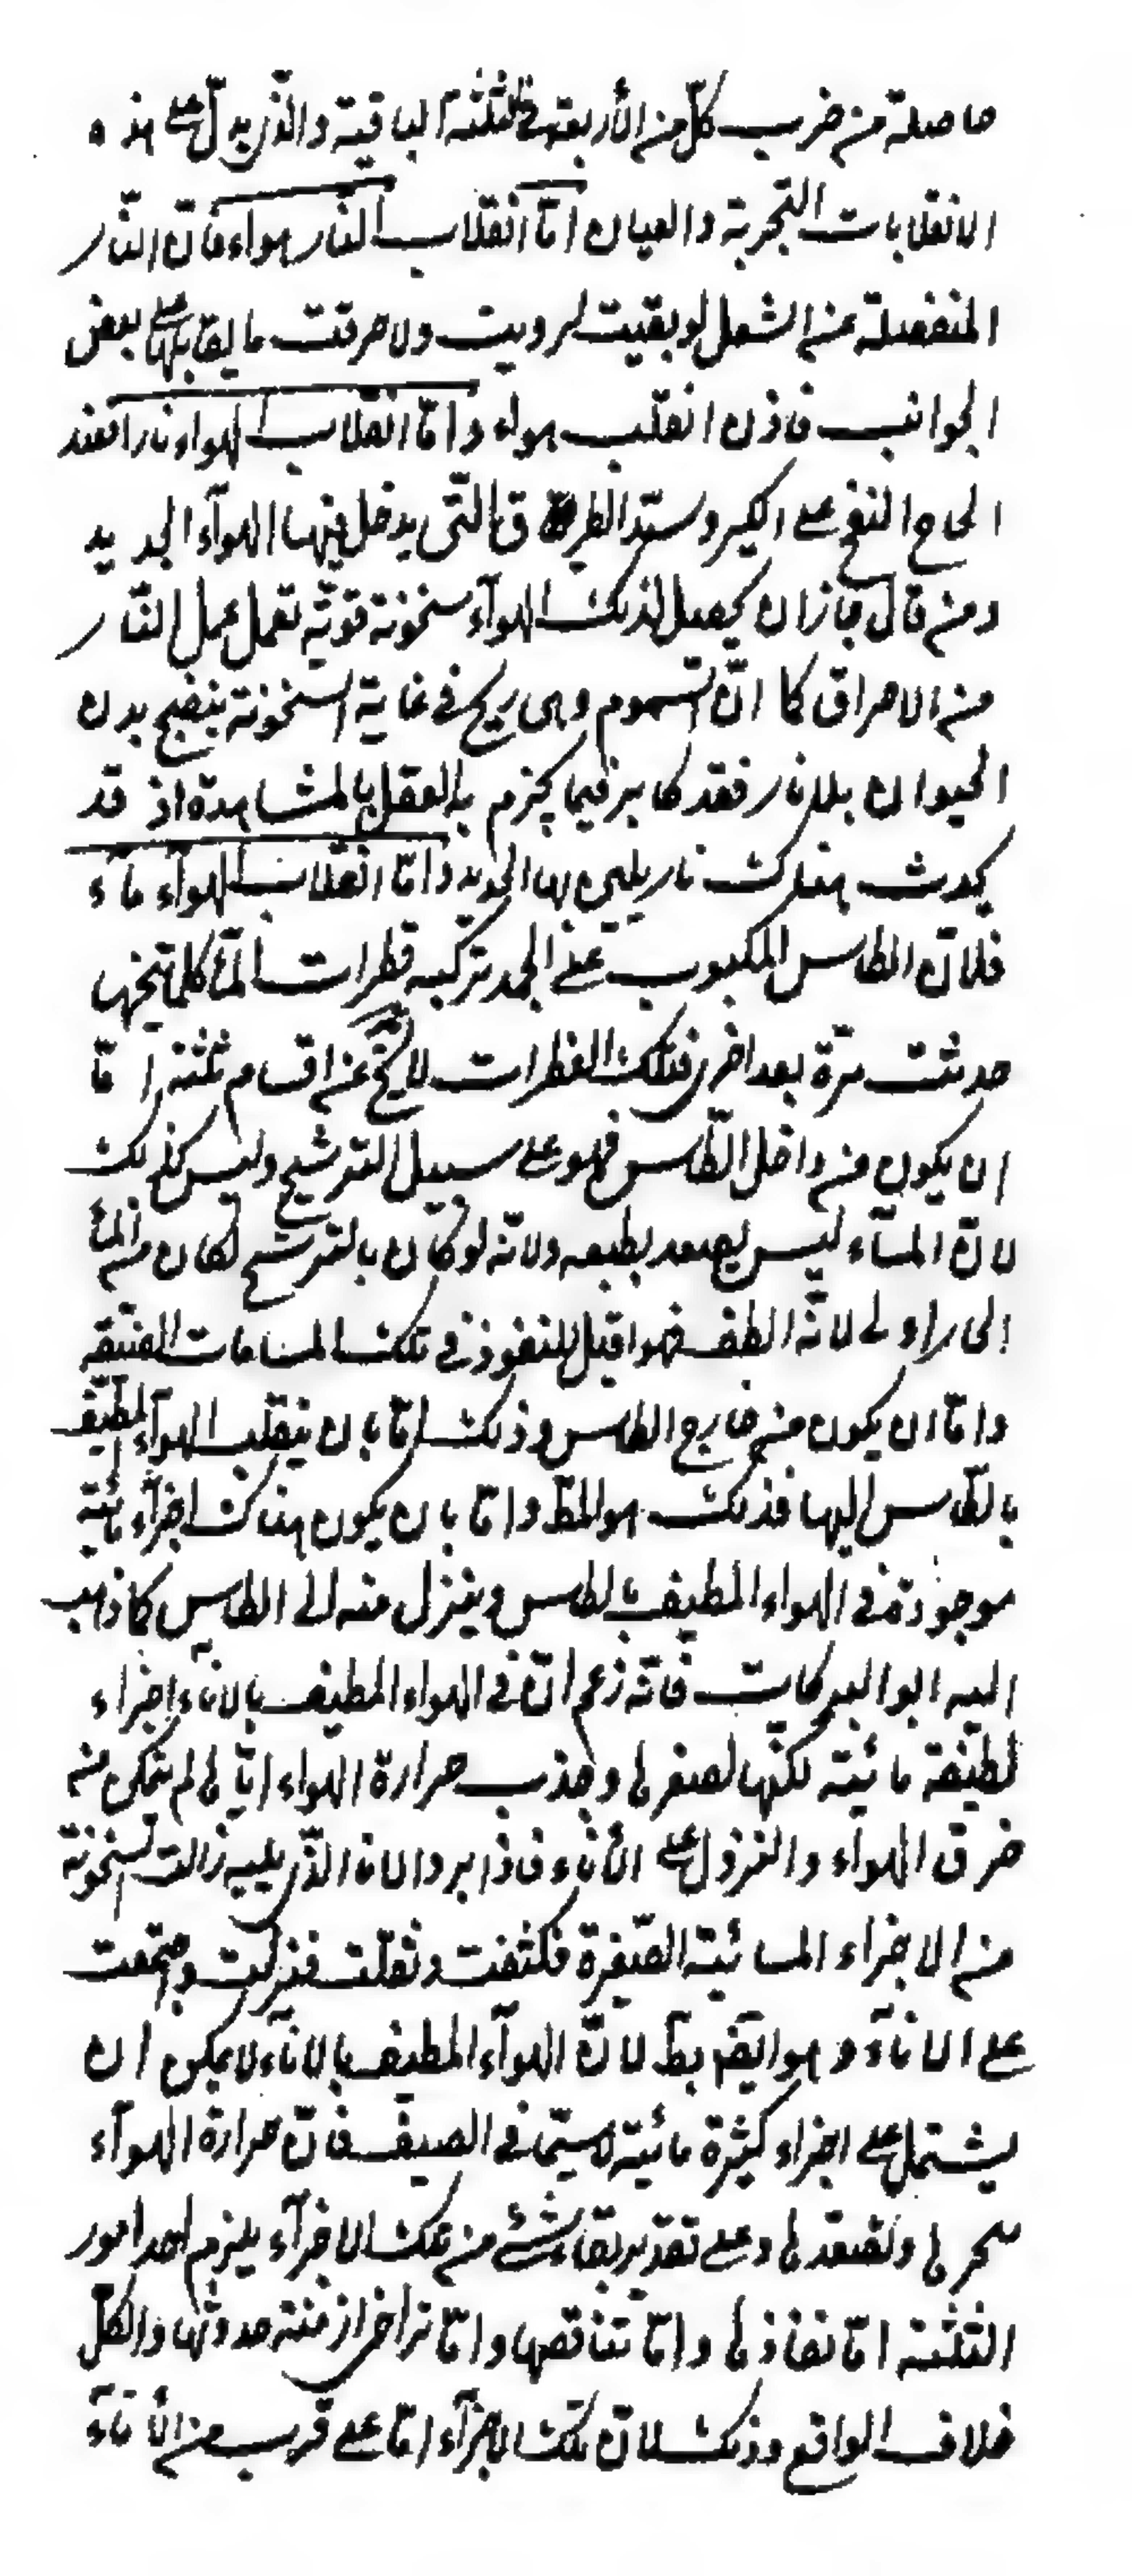 حاصلة من ضرب كلّ من الأربعة في الثلثة الباقية والذي يدلّ على هذه
الانقلابات التجربة والعيان امّا انقلاب النار هواء فانّ النّار
المنفصلة عن الشعل لو بقيت لرويت ولاحرقت ما يقابلها على بعض
الجوانب فاذن انقلب هواء وامّا انقلاب الهواء نارا فعند
الحاح النفخ على الكير وسدّ الطرق التّي يدخل فيها الهوآء الجديد
ومن قال جاز ان يحصل لذلك الهوآء سخونة قويّة تعمل عمل النّار
من الاحراق كما انّ السّموم وهى ريح في غاية السّخونة ينضج بدن
الحيوان بلا نار فقد كابر فيما يجزم بالعقل بالمشاهدة اذ قد
يحدث هناك نار يلين بها الحديد وامّا انقلاب الهوآء ماء
فلانّ الطاس المكبوب على الجمد تركبه قطرات المآء كلما نحّيتها
حدثت مرّة بعد اخرى فتلك القطرات لا يخ عن اقسام ثلثة امّا
ان يكون من داخل الطّاس فهو على سبيل الترشيح وليس كذلك
لانّ المآء ليس يصعد بطبعه ولانّه لو كان بالترشيح لكان من المآء
الحار اولى لانّه الطف فهو اقبل للنفوذ في تلك المسامات الضيّقه
وامّا ان يكون من خارج الطاس وذلك امّا بان ينقلب الهوآء المطيف
بالطّاس اليها فذلك هو المط وامّا بان يكون هناك اجزآء مائية
موجودة في الهواء المطيف بالطاس وينزل منه الى الطاس كما ذهب
اليه ابو البركات فانّه زعم انّ في الهواء المطيف بالانآء اجزاء
لطيفة مائيّة لكنّها لصغرها وجذب حرارة الهواء ايّاها لم يتمكن من
خرق الهوآء والنزول على الأناء فاذا برد الاناء الذّي يليه زالت السّخونة
من الاجزاء المائيّة الصّغيرة فكثفت وثقلت فنزلت واجتمعت
على الانآء وهو ايضا بط لانّ الهوآء المطيف بالانآء لا يمكن ان
يشتمل على اجزاء كثيرة مائيّة لاسيّما في الصيف فانّ حرارة الهوآء
تبخرها وتصعدها وعلى تقدير بقاء شئ من تلك الاجزآء يلزم احد امور
الثلثة امّا نفاذها وامّا تناقصها وامّا تراخى ازمنة حدوثها والكلّ
خلاف الواقع وذلك لانّ تلك الاجزآء امّا على قرب من الأنآء